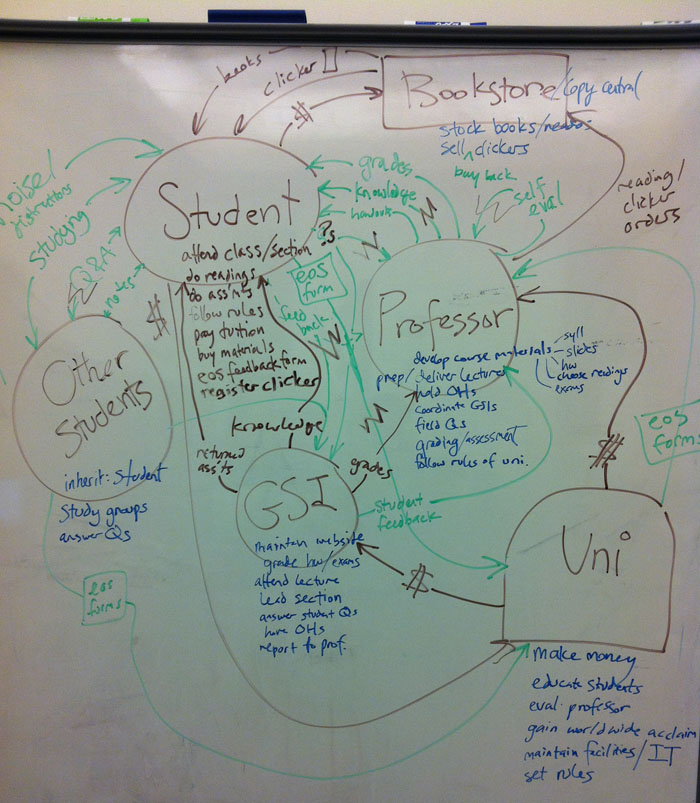 books
clicker
$
Bookstore/copy central
stock books/
sell clickers
buy back
noise/
distractions
studying
Q&A
notes
grades
knowledge
handouts
self
eval
reading/
clicker
orders
Student
attend class/section
do readings
do assints
follow rules
pay tuition
buy materials
eos feedback form
register clicker
?s
eos
form
feed
back
$
Professor
develop course materials
syll
slides
hw
choose readings
exams
prep/deliver lectures
hold OHs
coordinate GSIs
field Qs
grading/assessment
follow rules of uni.
Other
Students
inherit: Student
Study groups
answer Qs
knowledge
returned
assits
grades
GSI
maintain website
grade hw/exams
attend lecture
lead section
answer student Qs
have OHs
report to prof.
student
feedback
$
$
eos
forms
eos
forms
Uni
make money
educate students
eval professor
gain worldwide acclaim
maintain facilities/IT
set rules